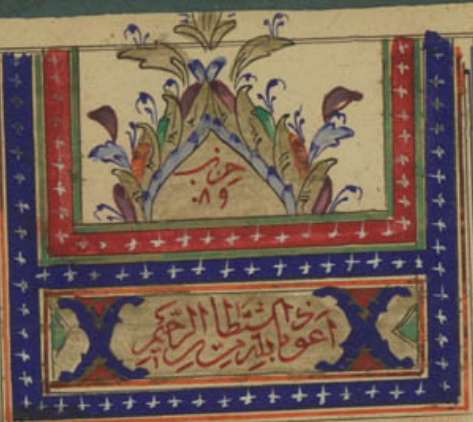 حزب
اعوذ بالله من الشيطان الرجيم